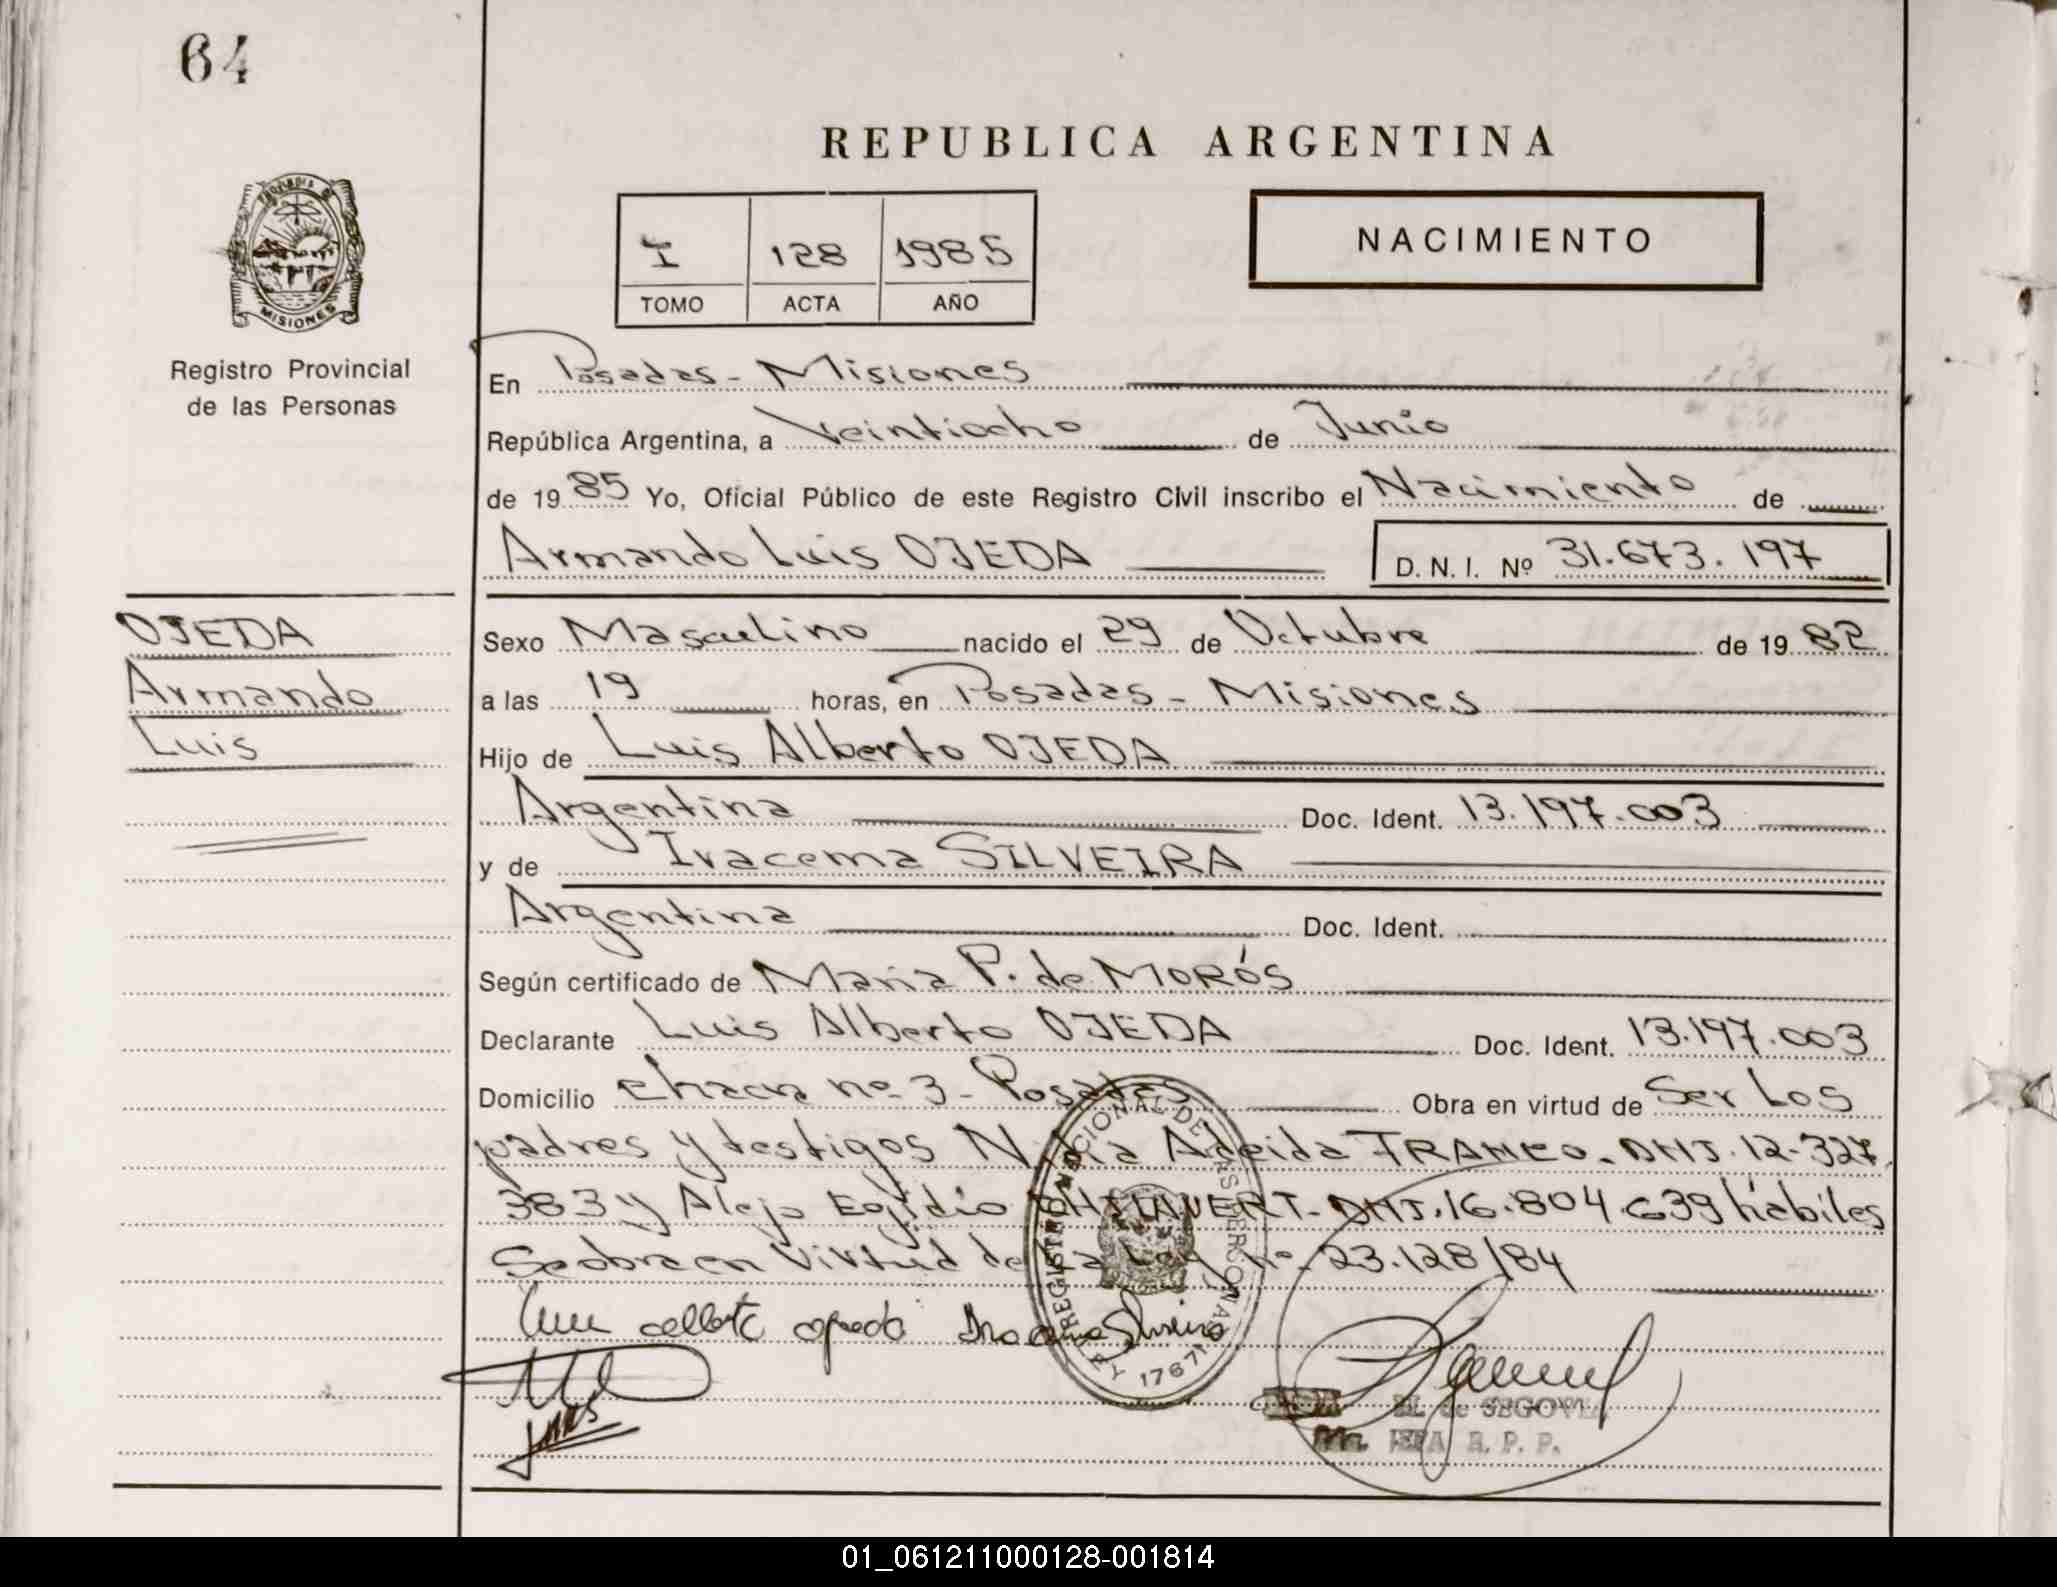 64
REPUBLICA ARGENTINA
I 128 1985
TOMO ACTA AÑO
NACIMIENTO
MISIONES
Registro Provincial
de las Personas
En Posadas - Misiones
República Argentina, a Veintiocho de Junio
de 1985 Yo, Oficial Público de este Registro Civil inscribo el Nacimiento de
Armando Luis OJEDA D. N. I. Nº 31.673.197
OJEDA
Armando
Luis
Sexo Masculino nacido el 29 de Octubre de 1982
a las 19 horas, en Posadas - Misiones
Hijo de Luis Alberto OJEDA
Argentina Doc. Ident. 13.197.003
y de Iracema SILVEIRA
Argentina Doc. Ident.
Según certificado de Maria P. de MORÓS
Declarante Luis Alberto OJEDA Doc. Ident. 13.197.003
Domicilio chacra nº 3 - Posadas Obra en virtud de Ser Los
padres y testigos DNI. 12.327.
383 y Alejo Egidio DNI. 16.804.639 hábiles
Se obra en Virtud de La Ley nº 23.128/84
REGISTRO NACIONAL DE LAS PERSONAS
LEY 17671
M. de SEGOVIA
JEFA R. P. P.
01_061211000128-001814